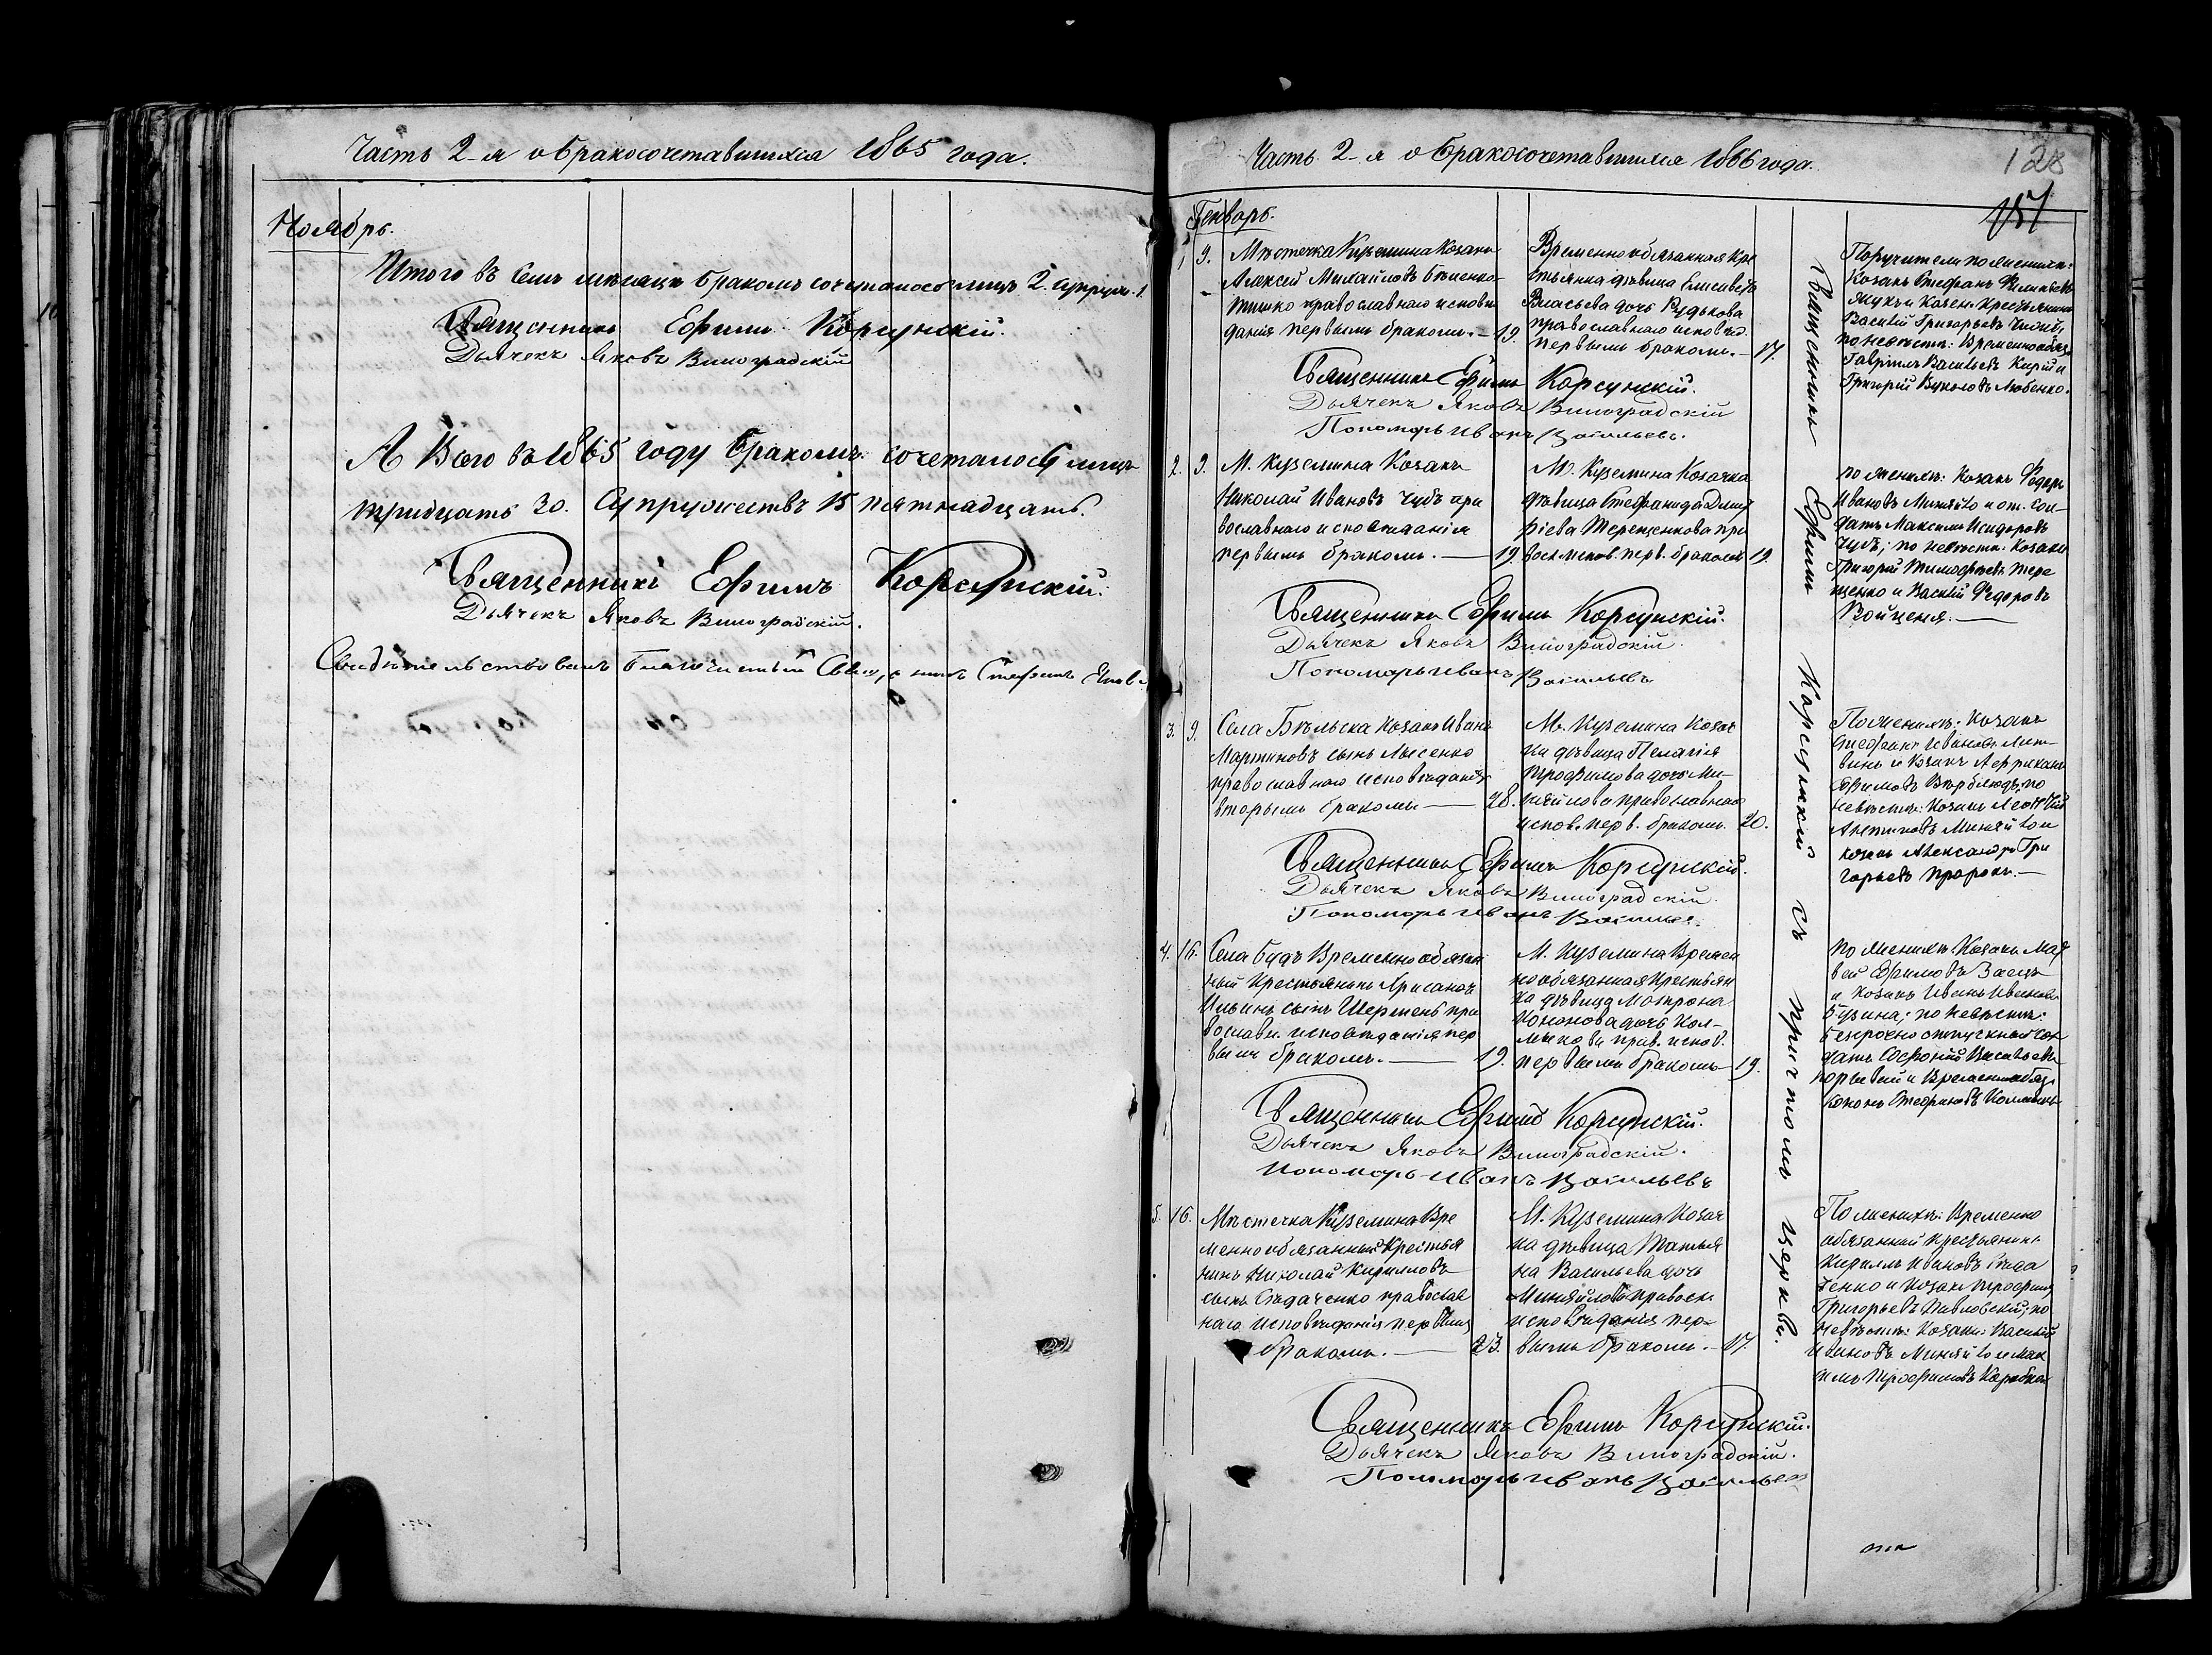 Часть 2-я о бракосочетавшихся 1865 года.
Ноябрь.
Итого въ семъ месяце бракомъ сочеталось лицъ 2. супруж. 1
Священникъ Ефимъ Корсунскій.
Дьячекъ Яковъ Виноградскій
А Всего въ 1865 году бракомъ сочеталось лицъ
тридцать 30. Супружествъ 15 пятнадцать.
Священникъ Ефимъ Корсунскій.
Дьячекъ Яковъ Виноградскій.
Свидетельствовалъ Благочинный Священникъ Стефанъ
Часть 2-я о бракосочетавшихся 1866 года.
128
151
Генварь.
1 9. Мѣстечка Куземина Козакъ
Алексей Михайловъ
православнаго исповѣ
данія первымъ бракомъ. — 19.
Временнообязанная Кре
стьянка дѣвица Елисавета
Власьева дочь Рудькова
православнаго исповѣд.
первымъ бракомъ. — 17.
Поручители по женихѣ:
Козакъ Стефанъ
и Казен. Крестьянинъ
Василій Григорьевъ
по невѣстѣ: Временнообяз.
Гавріилъ Васильевъ Кирій и
Григорій Вуколовъ Любенко.
Священникъ Ефимъ Корсунскій.
Дьячекъ Яковъ Виноградскій
Пономарь Иванъ Васильевъ.
2. 9. М. Куземина Козакъ
Николай Ивановъ Чубъ пра
вославнаго исповѣданія
первымъ бракомъ. — 19.
М. Куземина Козачка
дѣвица Стефанида Дмит
ріева Терещенкова пра
восл. испов. перв. бракомъ 19.
по женихѣ: Козакъ Федоръ
Ивановъ Миняйло и от. Сол-
датъ Максимъ Исидоровъ
Чубъ; по невѣстѣ: Козаки
Григорій Тимофеевъ Тере
щенко и Василій Федоровъ
Войценя. —
Священникъ Ефимъ Корсунскій.
Дьячекъ Яковъ Виноградскій.
Пономарь Иванъ Васильевъ
3. 9. Села Бѣльска Козакъ Иванъ
Мартиновъ сынъ Лысенко
православнаго исповѣданія
вторымъ бракомъ — 28.
М. Куземина Козач
ка дѣвица Пелагія
Трофимова дочь Ми-
няйлова православнаго
испов. перв. бракомъ. 20.
По женихѣ: Козакъ
Ивановъ Лит-
винъ и Козакъ Африканъ
Ефимовъ Верблюдъ, по
невѣстѣ: Козакъ Леонтій
Антиповъ Миняйло и
козакъ Александръ Гри
горьевъ Пророкъ. —
Священникъ Ефимъ Корсунскій.
Дьячекъ Яковъ Виноградскій.
Пономарь Иванъ Васильевъ.
4. 16. Села Будъ Временнообязан
ный Крестьянинъ
Ильинъ сынъ Шерстень пра
вославн. исповѣданія пер
вымъ бракомъ. — 19.
М. Куземина Времен
нообязанная Крестьян
ка дѣвица Матрона
Кононова дочь Кол-
мыкова прав. испов.
первымъ бракомъ — 19.
по женихѣ Козакъ Мат
вей Ефимовъ Заецъ
и Козакъ Иванъ Ивановъ
Бузина; по невѣстѣ:
безсрочно отпускной Сол
датъ Софроній Васильевъ
и Временнообяз.
Кононъ Стефановъ Колмыкъ
Священникъ Ефимъ Корсунскій.
Дьячекъ Яковъ Виноградскій.
Пономарь Иванъ Васильевъ
5. 16. Мѣстечка Куземина Вре
меннообязанный Крестья
нинъ Николай Кириловъ
сынъ Сѣдаченко православ
наго исповѣданія первымъ
бракомъ. — 23.
М. Куземина Козач
ка дѣвица Татья
на Васильева дочь
Миняйлова правосл.
исповѣданія пер-
вымъ бракомъ. — 17.
По женихѣ: Временно
обязанный крестьянинъ
Кириллъ Ивановъ Сѣда
ченко и Козакъ Трофимъ
Григорьевъ Павловскій; по
невѣстѣ: Козаки: Василій
Ивановъ Миняйло и Мак
симъ Трофимовъ
Священникъ Ефимъ Корсунскій.
Дьячекъ Яковъ Виноградскій.
Пономарь Иванъ Васильевъ
Священникъ Ефимъ Корсунскій съ причтомъ церкви.